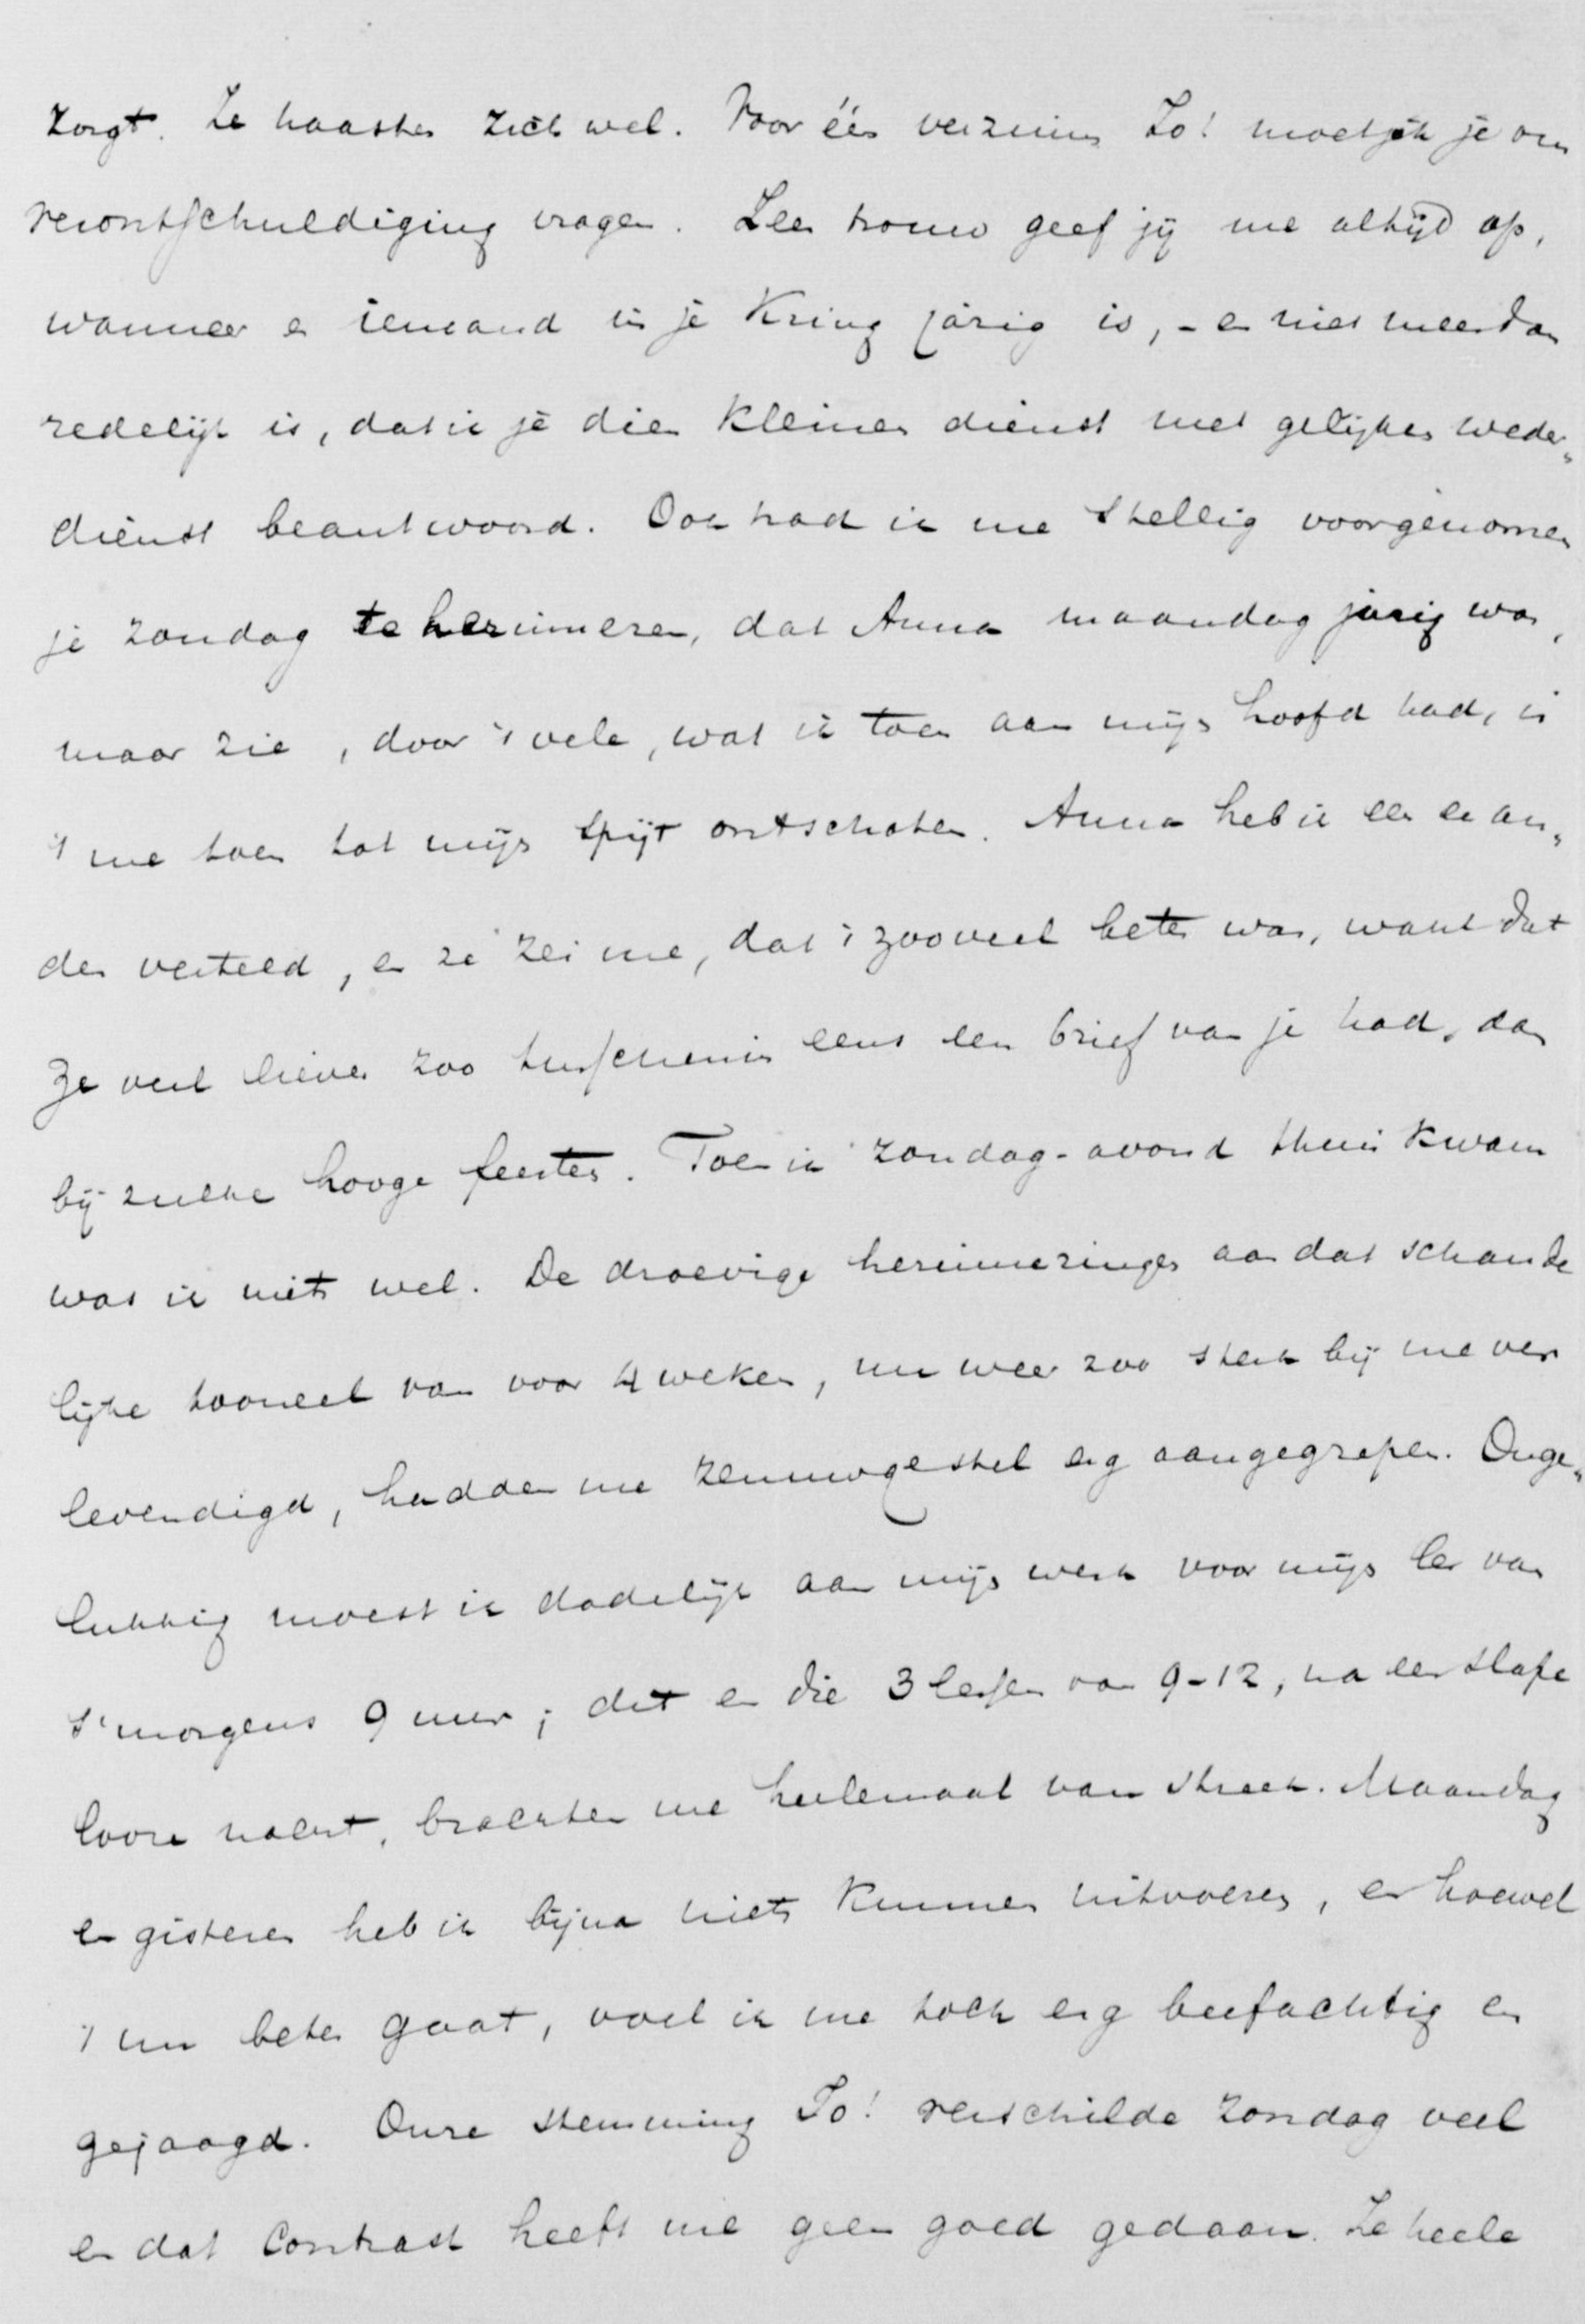 zorgt. Ze haasten zich wel. Voor één verzuim Jo! moet ik je om
verontschuldiging vragen. Zeer trouw geef jij me altijd op,
wanneer er iemand in je kring jarig is, - en niet meer dan
redelijk is, dat ik je dien kleinen dienst met gelijken weder„
dienst beantwoord. Ook had ik me stellig voorgenomen
je zondag te herinneren, dat Anna maandag jarig was,
maar zie, door 't vele, wat ik toen aan mijn hoofd had, is
't me toen tot mijn spijt ontschoten. Anna heb ik een en an„
der verteld, en ze zei me, dat 't zooveel beter was, want dat
ze veel liever zoo tusschenin eens een brief van je had, dan
bij zulke hooge feesten. Toen ik zondag-avond thuis kwam
was ik niets wel. De droevige herinneringen aan dat schande
lijke tooneel van voor 4 weken, nu weer zoo sterk bij me ver
levendigd, hadden me zenuwgestel erg aangegrepen. Onge„
lukkig moest ik dadelijk aan mijn werk voor mijn les van
s'morgens 9 uur; dat en die 3 lessen van 9-12, na een slape
looze nacht, brachten me heelemaal van streek. Maandag
en gisteren heb ik bijna niets kunnen uitvoeren, en hoewel
't nu beter gaat, voel ik me toch erg beefachtig en
gejaagd. Onze stemming Jo! verschilde zondag veel
en dat contrast heeft me geen goed gedaan. Je heele